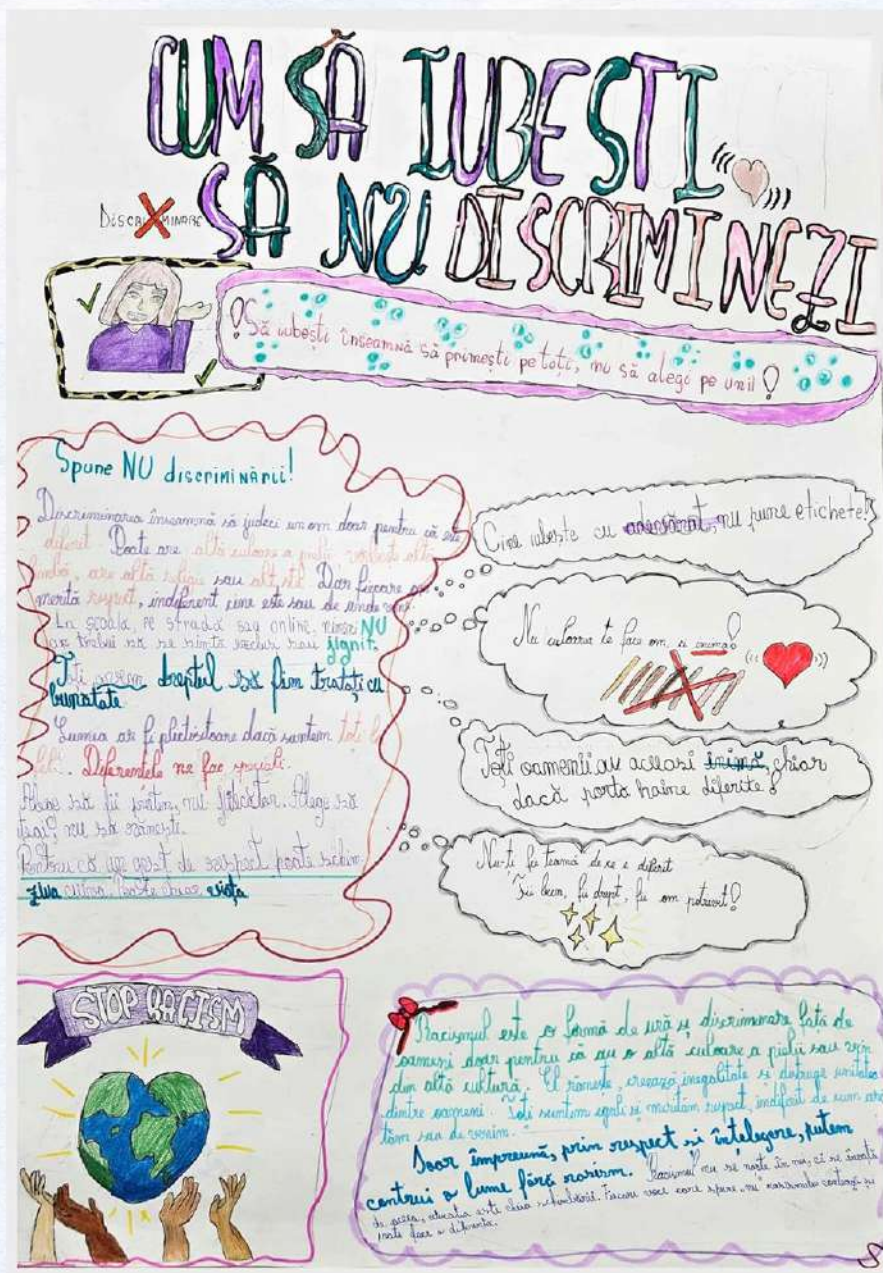 CUM SĂ IUBEȘTI
SĂ NU DISCRIMINEZI
DISCRIMINARE
Să iubești înseamnă să primești pe toți, nu să alegi pe unii!
Spune NU discriminării!
Discriminarea înseamnă să judeci un om doar pentru că este
diferit. Poate are altă culoare a pielii, vorbește altă
limbă, are altă religie sau alt stil. Dar fiecare om
merită respect, indiferent cine este sau de unde vine.
La școală, pe stradă sau online, nimeni NU
ar trebui să se simtă exclus sau jignit.
Toți avem dreptul să fim tratați cu
bunatate.
Lumea ar fi plictisitoare dacă suntem toți la
fel. Diferentele ne fac speciali.
Alege să fii prieten, nu
nu să rănești.
Pentru că un gest de respect poate schim-
ziua cuiva. Poate chiar viața
Cine iubește cu adevărat, nu pune etichete!
Nu culoarea te face om, ci inima!
Toți oamenii au aceeasi inimă, chiar
dacă porta haine diferite!
Nu-ti fie teamă de ce e diferit
Fii bun, fii drept, fii om potrivit!
STOP RACISM
Racismul este o formă de ură și discriminare fată de
oameni doar pentru că au o altă culoare a pielii sau vin
din altă cultură. El rănește, creează inegalitate si distruge unitatea
dintre oameni. Toti suntem egali si merităm respect, indiferent de cum ară
tăm sau de venim.
Doar împreună, prin respect si înțelegere, putem
contrui o lume fără rasism. Racismul nu se naște în noi, ci se învață
de aceea, educatia este cheia schimbării. Fiecare voce care spune „nu" rasismului contează și
poate face o diferenta.